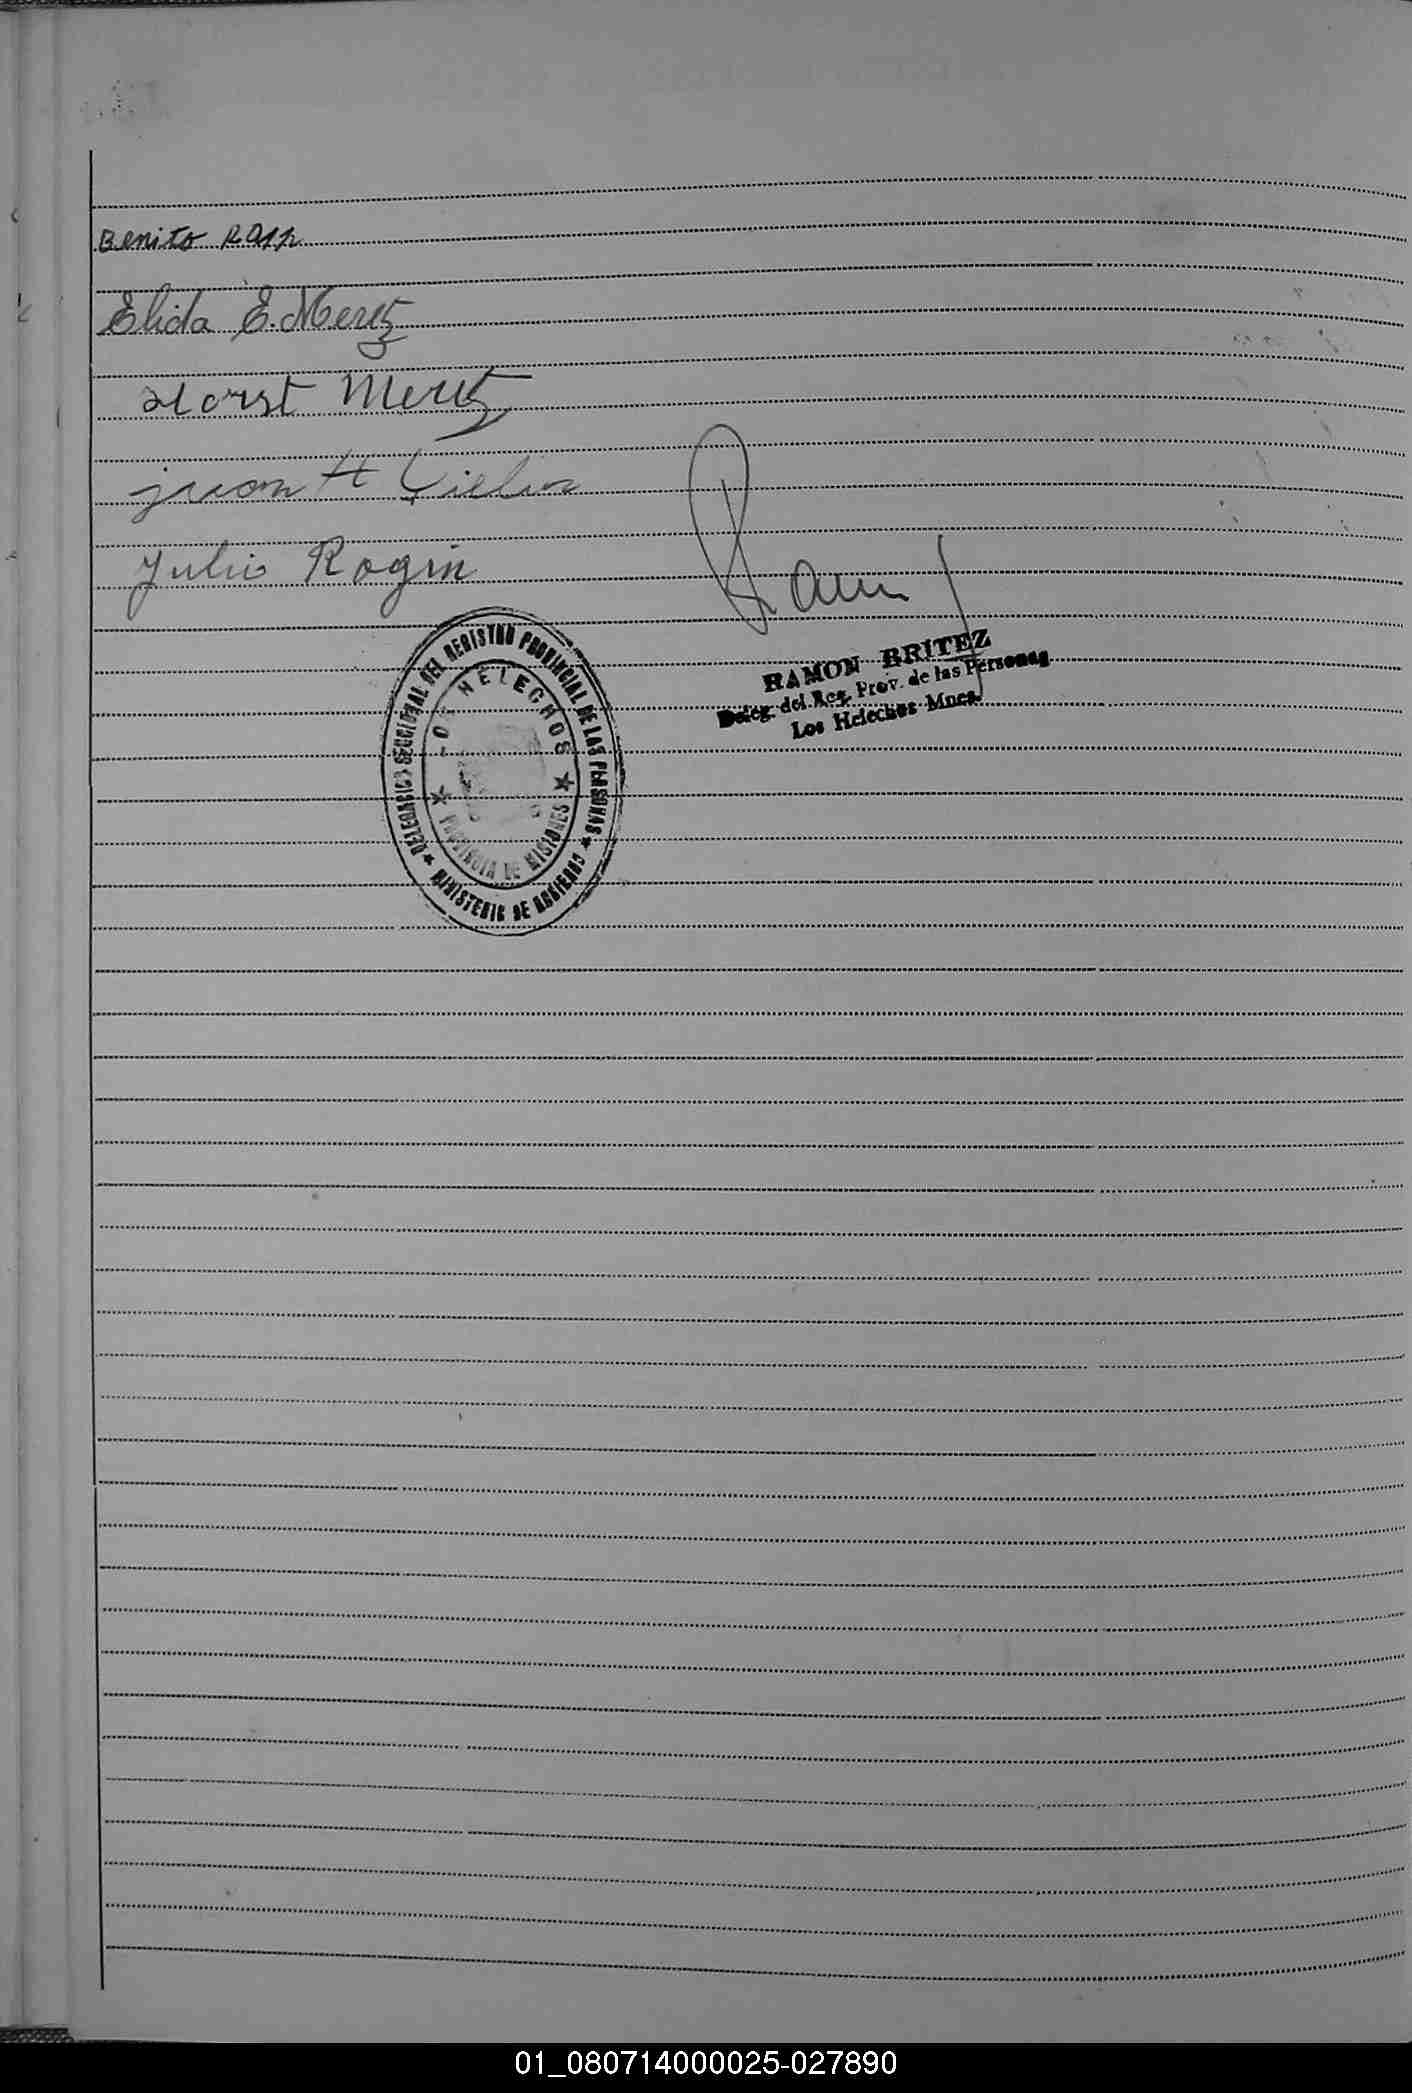 Benito Rapp
Elida E. Mertz
Horst Mertz
juan H
Julio Rogin
RAMON BRITEZ
Deleg. del Reg. Prov. de las Personas
Los Helechos Mnes.
DELEGACION SECCIONAL DEL REGISTRO PROVINCIAL DE LAS PERSONAS
LOS HELECHOS
PROVINCIA DE MISIONES
MINISTERIO DE GOBIERNO
01_080714000025-027890